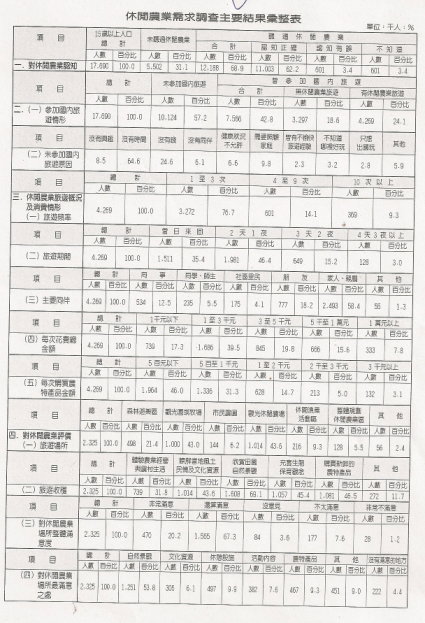 休閒農業需求調查主要結果彙整表
單位：千人；%
項 目 15歲以上人口總計 未聽過休閒農業 聽過休閒農業
合計 認知正確 認知有誤 不知道
人數 百分比 人數 百分比 人數 百分比 人數 百分比 人數 百分比 人數 百分比
一、對休閒農業認知 17.690 100.0 5.502 31.1 12.188 68.9 11.003 62.2 601 3.4
項 目 總計 未參加國內旅遊 曾參加國內旅遊
合計 無休閒農業旅遊 有休閒農業旅遊
人數 百分比 人數 百分比 人數 百分比 人數 百分比 人數 百分比
二、(一)參加國內旅遊情形 17.690 100.0 10.124 57.2 7.566 42.8 3.297 18.6 4.269 24.1
項 目 沒有興趣 沒有時間 沒有錢 沒有同伴 健康狀況不允許 需要照顧家庭 不知道哪裡好玩 其他
(二)未參加國內旅遊原因 8.5 64.6 24.6 6.1 6.6 9.8 2.3 3.2 2.8 5.9
項 目 總計 1至3次 4至9次 10次以上
人數 百分比 人數 百分比 人數 百分比 人數 百分比
三、休閒農業旅遊概況及消費情形
(一)旅遊頻率 4.269 100.0 3.272 76.7 601 14.1 369 9.3
項 目 總計 當日來回 2天1夜 3天2夜 4天3夜以上
人數 百分比 人數 百分比 人數 百分比 人數 百分比 人數 百分比
(二)旅遊期間 4.269 100.0 1.511 35.4 1.981 46.4 649 15.2 128 3.0
項 目 總計 同事 同學、師生 社區居民 朋友 家人、親屬 其他
人數 百分比 人數 百分比 人數 百分比 人數 百分比 人數 百分比 人數 百分比 人數 百分比
(三)主要同伴 4.269 100.0 534 12.5 235 5.5 175 4.1 777 18.2 2.493 58.4 56 1.3
項 目 總計 1千元以下 1至3千元 3至5千元 5千至1萬元 1萬元以上
人數 百分比 人數 百分比 人數 百分比 人數 百分比 人數 百分比 人數 百分比
(四)每次花費總金額 4.269 100.0 739 17.3 1.686 39.5 845 19.8 666 15.6 333 7.8
項 目 總計 5百元以下 5百至1千元 1至2千元 2千至3千元 3千元以上
人數 百分比 人數 百分比 人數 百分比 人數 百分比 人數 百分比 人數 百分比
(五)每次購買農特產品金額 4.269 100.0 1.964 46.0 1.336 31.3 628 14.7 213 5.0 132 3.1
項 目 總計 森林遊樂區 觀光農園牧場 市民農園 觀光休閒農場 其他
人數 百分比 人數 百分比 人數 百分比 人數 百分比 人數 百分比 人數 百分比 人數 百分比 人數 百分比
四、對休閒農業評價
(一)旅遊場所 2.325 100.0 498 21.4 1.000 43.0 144 6.2 1.014 43.6 216 9.3 128 5.5 56 2.4
項 目 總計 其他
人數 百分比 人數 百分比 人數 百分比 人數 百分比 人數 百分比 人數 百分比 人數 百分比
(二)旅遊收穫 2.325 100.0 739 31.8 1.014 43.6 1.608 69.1 1.057 45.4 1.081 46.5 272 11.7
項 目 總計 非常滿意 還算滿意 沒意見 不太滿意 非常不滿意
人數 百分比 人數 百分比 人數 百分比 人數 百分比 人數 百分比 人數 百分比
(三)對休閒農業場所整體滿意度 2.325 100.0 470 20.2 1.565 67.3 84 3.6 177 7.6 28 1.2
項 目 總計 自然景觀 文化資源 休憩設施 活動內容 農特產品 其他 沒有滿意的地方
人數 百分比 人數 百分比 人數 百分比 人數 百分比 人數 百分比 人數 百分比 人數 百分比 人數 百分比
(四)對休閒農業場所最滿意之處 2.325 100.0 1.251 53.8 305 6.1 497 9.9 382 7.6 467 9.3 451 9.0 222 4.4